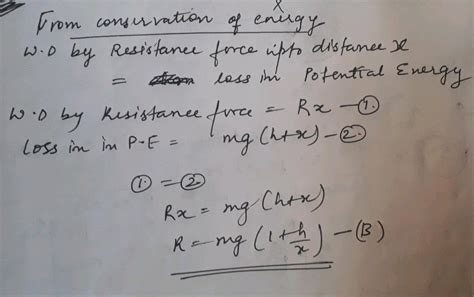 From conservation of energy
W.D by Resistance force upto distance x
= loss in Potential Energy
W.D by Resistance force = Rx —①
Loss in in P.E = mg(h+x) —②
① = ②
Rx = mg(h+x)
R = mg(1+h/x) —(B)